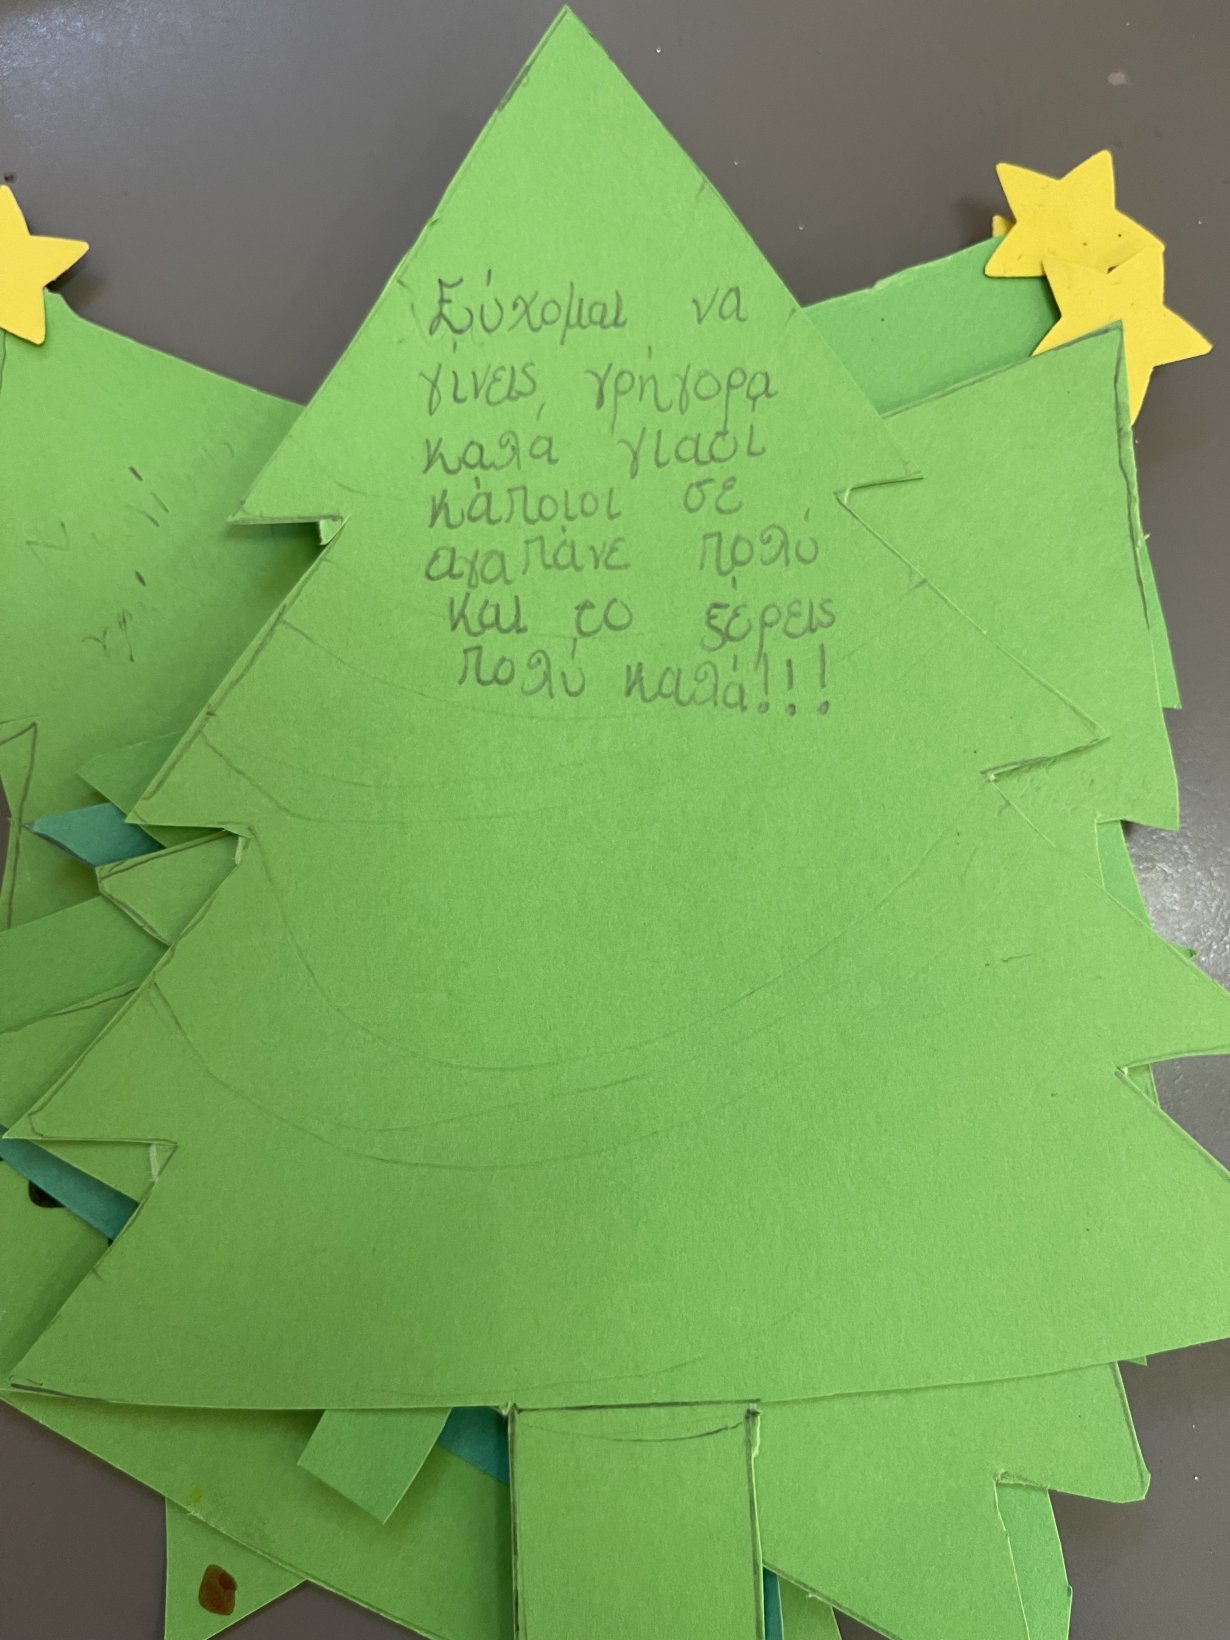 Εύχομαι να
γίνεις γρήγορα
καλά γιατί
κάποιοι σε
αγαπάνε πολύ
και το ξέρεις
πολύ καλά!!!